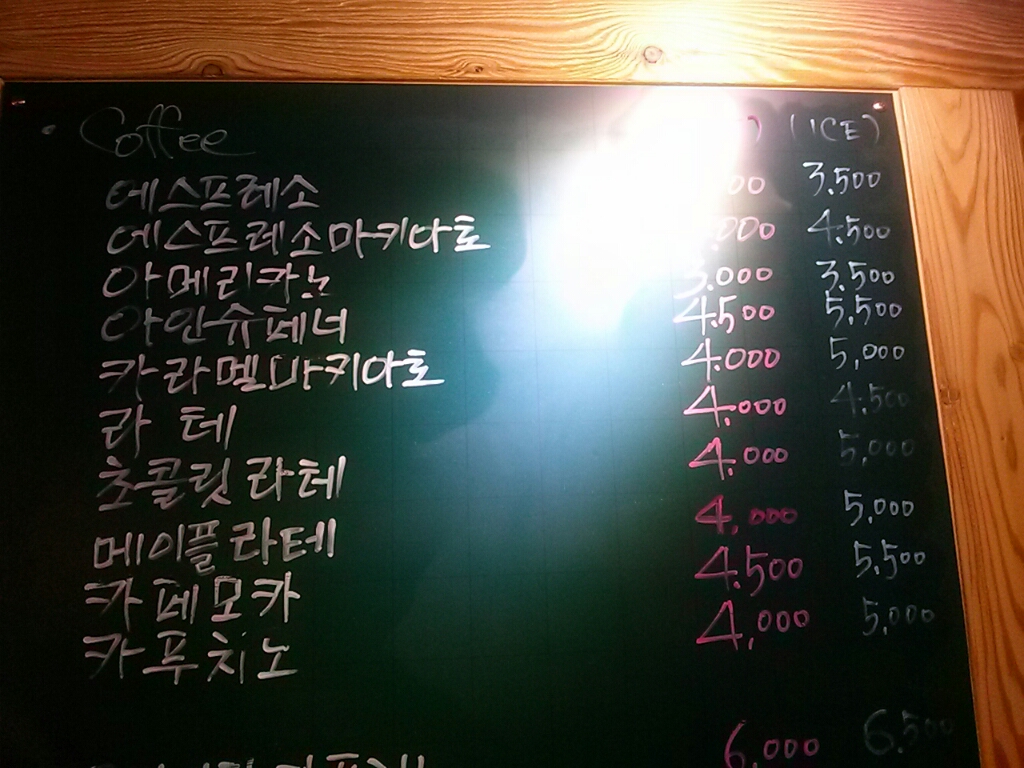 Coffee (ICE)
에스프레소 3.500
에스프레소마키아토 4.500
아메리카노 3.000 3.500
아인슈페너 4.500 5,500
카라멜마키아토 4.000 5,000
라 테 4.000 4.500
초콜릿 라테 4.000 5,000
메이플 라테 4,000 5,000
카페모카 4.500 5.500
카푸치노 4,000 5,000
6,000 6.500